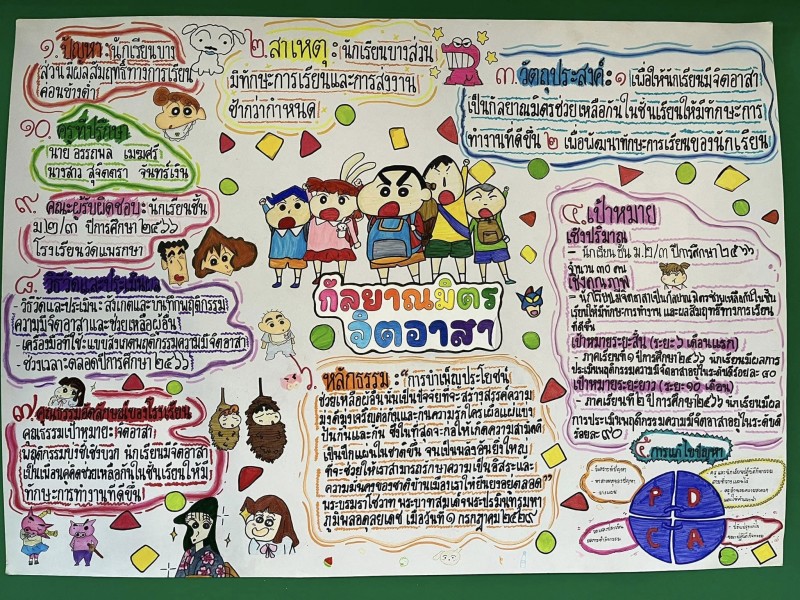 ๑. ปัญหา : นักเรียนบาง
ส่วนมีผลสัมฤทธิ์ทางการเรียน
ค่อนข้างต่ำ
๒. สาเหตุ : นักเรียนบางส่วน
มีทักษะการเรียนและการส่งงาน
ช้ากว่ากำหนด
๓. วัตถุประสงค์ : ๑ เพื่อให้นักเรียนมีจิตอาสา
เป็นกัลยาณมิตรช่วยเหลือกันในชั้นเรียนให้มีทักษะการ
ทำงานที่ดีขึ้น ๒ เพื่อพัฒนาทักษะการเรียนของนักเรียน
๔ เป้าหมาย
เชิงปริมาณ
- นักเรียนชั้น ม.๒/๓ ปีการศึกษา ๒๕๖๖
จำนวน ๓๐ คน
เชิงคุณภาพ
- นักเรียนมีจิตอาสาเป็นกัลยาณมิตรช่วยเหลือกันในชั้น
เรียนให้มีทักษะการทำงาน และผลสัมฤทธิ์ทางการเรียน
ที่ดีขึ้น
เป้าหมายระยะสั้น (ระยะ ๖ เดือนแรก)
- ภาคเรียนที่ ๑ ปีการศึกษา ๒๕๖๖ นักเรียนมีผลการ
ประเมินพฤติกรรมความมีจิตอาสาอยู่ในระดับดีร้อยละ ๘๐
เป้าหมายระยะยาว (ระยะ ๑๐ เดือน)
- ภาคเรียนที่ ๒ ปีการศึกษา ๒๕๖๖ นักเรียนมีผล
การประเมินพฤติกรรมความมีจิตอาสาอยู่ในระดับดี
ร้อยละ ๙๐
๕. การแก้ไขปัญหา
P D
C A
กัลยาณมิตร
จิตอาสา
๖. หลักธรรม : "การบำเพ็ญประโยชน์
ช่วยเหลือผู้อื่นนั้นเป็นปัจจัยที่จะสร้างสรรค์ความ
มุ่งดีมุ่งเจริญต่อกันและกัน ความรู้จักเผื่อแผ่แบ่ง
ปันกันและกัน ซึ่งในที่สุดจะก่อให้เกิดความสามัคคี
เป็นปึกแผ่นในชาติขึ้น จนเป็นพลังอันยิ่งใหญ่
ที่จะช่วยให้เราสามารถรักษาความเป็นอิสระและ
ความมั่นคงของชาติบ้านเมืองเราให้ยืนยงอยู่ตลอดไป"
พระบรมราโชวาท พระบาทสมเด็จพระปรมินทรมหา
ภูมิพลอดุลยเดช เมื่อวันที่ ๑ กรกฎาคม
๗ คุณธรรมอัตลักษณ์ของโรงเรียน
คุณธรรมเป้าหมาย : จิตอาสา
พฤติกรรมบ่งชี้เชิงบวก นักเรียนมีจิตอาสา
เป็นเพื่อนคู่คิดช่วยเหลือกันในชั้นเรียนให้มี
ทักษะการทำงานที่ดีขึ้น
๘. วิธีวัดและประเมินผล
- วิธีวัดและประเมิน : สังเกตและบันทึกพฤติกรรม
ความมีจิตอาสาและช่วยเหลือผู้อื่น
- เครื่องมือที่ใช้ : แบบสังเกตพฤติกรรมความมีจิตอาสา
- ช่วงเวลา : ตลอดปีการศึกษา ๒๕๖๖
๙ คณะผู้รับผิดชอบ : นักเรียนชั้น
ม.๒/๓ ปีการศึกษา ๒๕๖๖
โรงเรียนวัดแพรกษา
๑๐. ครูที่ปรึกษา
นาย อรรถพล เมฆศรี
นางสาว สุจิตตรา จันทร์เงิน